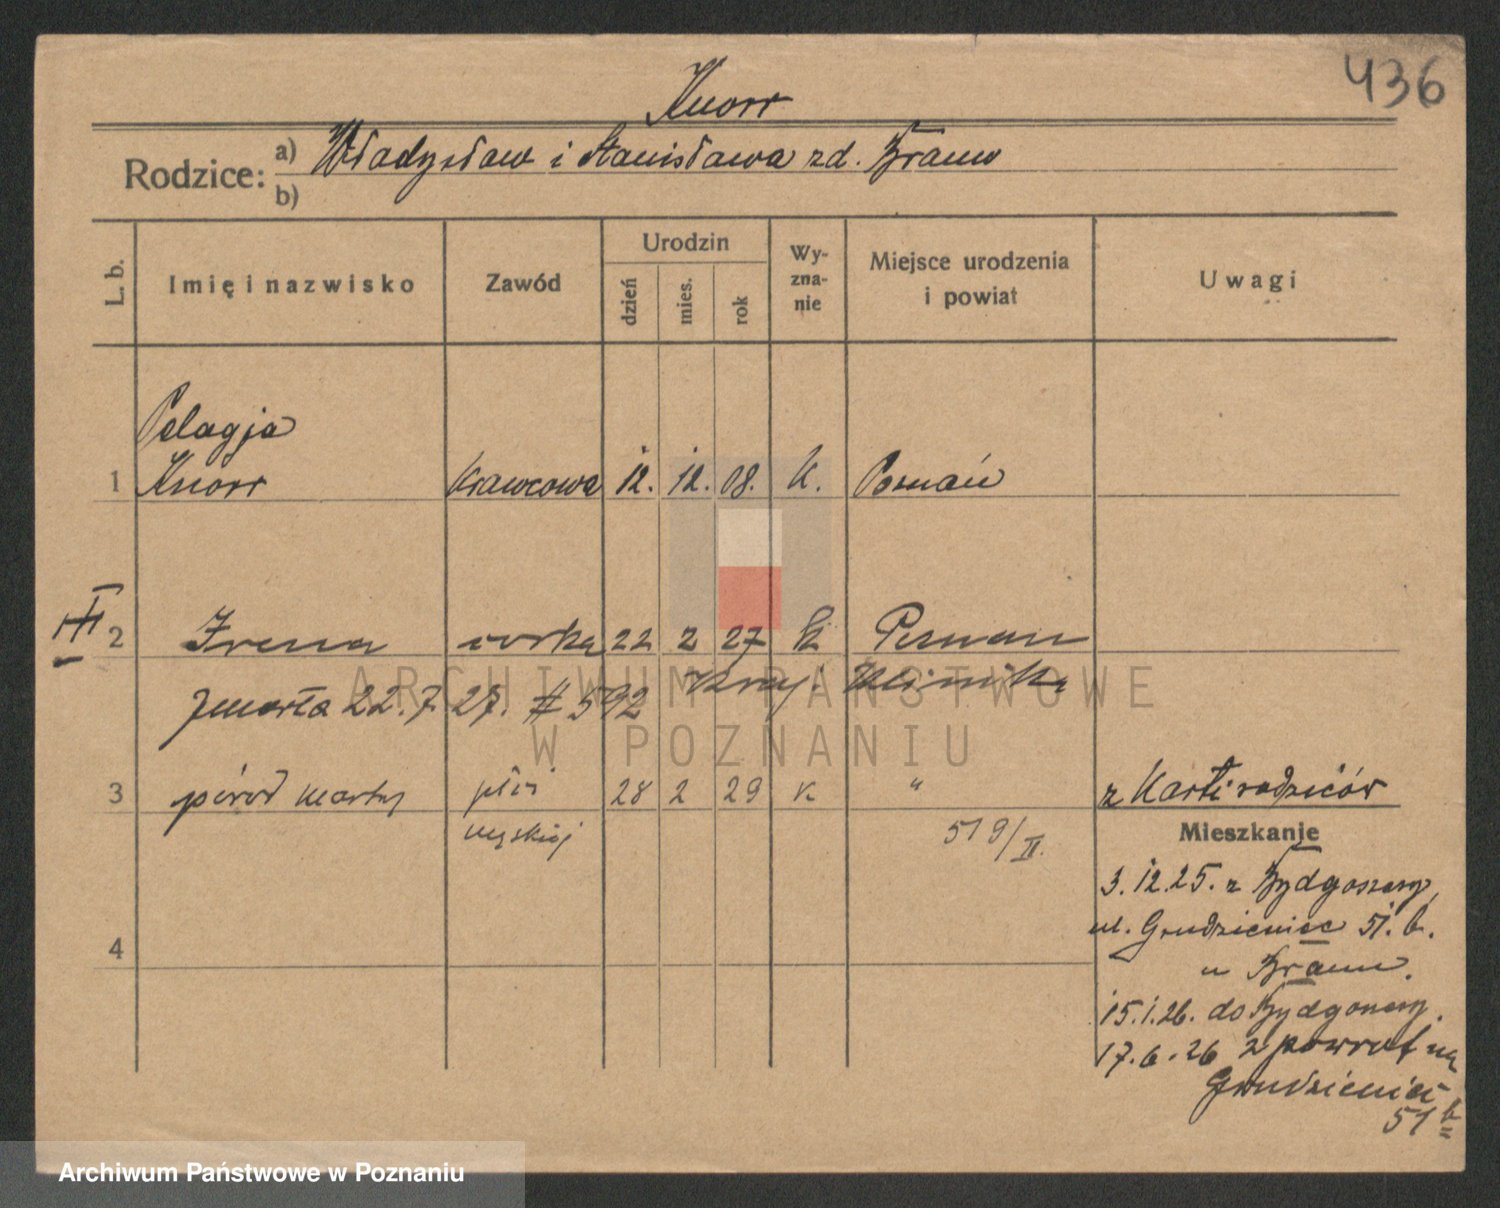 436
Knorr
Rodzice: a) Władysław i Stanisława zd. Braun
b)
L. b. Imię i nazwisko Zawód Urodzin dzień mies. rok Wy-zna-nie Miejsce urodzenia i powiat Uwagi
Pelagja
1 Knorr krawcowa 12. 12. 08. k. Poznań
III 2 Irena córka 22 2 27 k Poznań
zmarła 22.7.27. # 592 Kraj. Klinika
3 poród martwy płci 28 2 29 k " z Karti rodziców
męskiej 519/II.
Mieszkanie
3.12.25. z Bydgoszczy,
ul. Grudzieniec 51. b.
u Braun.
4
15.1.26. do Bydgoszczy.
17.6.26 z powrot na
Grudzieniec
51 b
ARCHIWUM PAŃSTWOWE
W POZNANIU
Archiwum Państwowe w Poznaniu